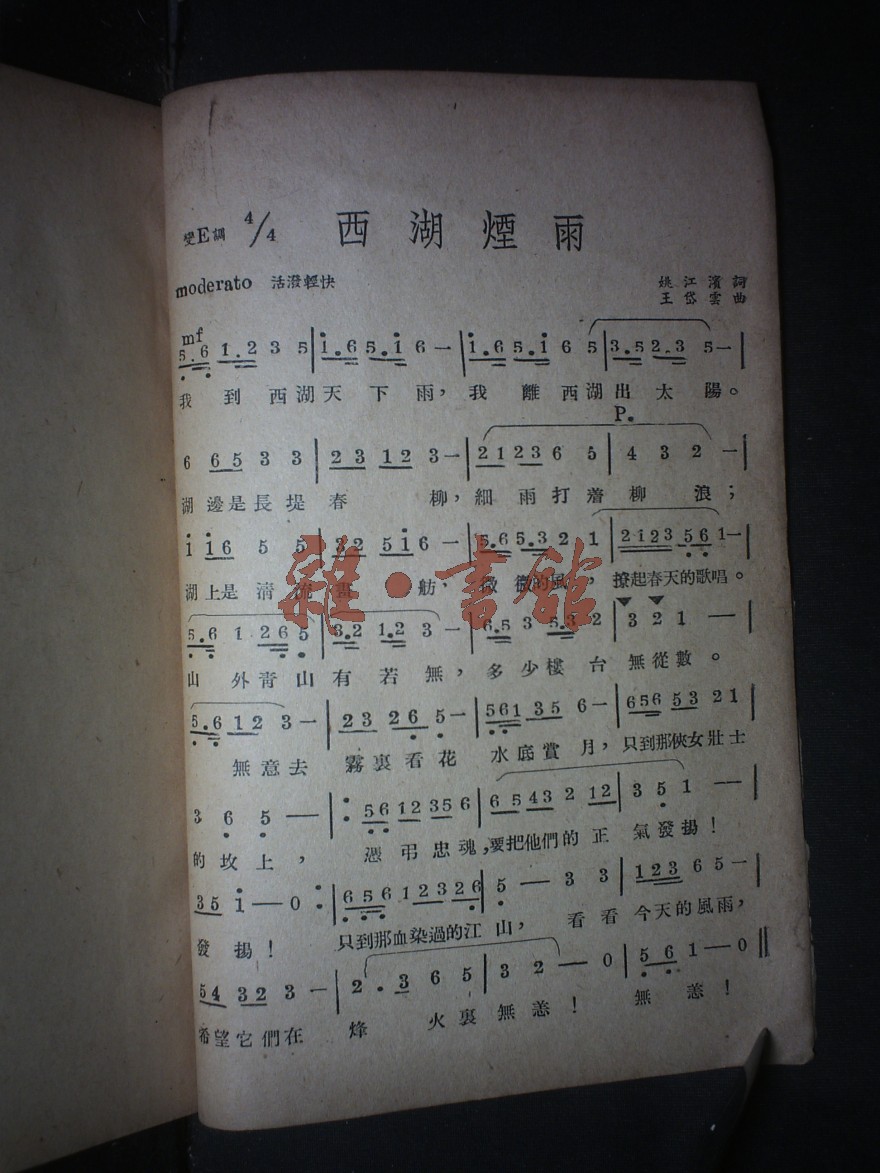 變E調 4/4 西湖煙雨
moderato 活潑輕快 姚江濱詞
王岱雲曲
mf
5.6 1.2 3 5 | i.6 5.i 6 — | i.6 5.i 6 5 | 3.5 2.3 5 — |
我到西湖天下雨，我離西湖出太陽。
P.
6 65 3 3 | 23 12 3 — | 21 23 6 5 | 4 3 2 — |
湖邊是長堤春柳，細雨打着柳浪；
i i6 5 5 | 32 5i 6 — | 5.6 5.3 2 1 | 2123 56 1 — |
湖上是清流畫舫，微微的風，撩起春天的歌唱。
5.6 1 26 5 | 3.2 1.2 3 — | 6.5 3 5.3 2 | 3 2 1 — |
山外青山有若無，多少樓台無從數。
5.6 12 3 — | 23 26 5 — | 561 35 6 — | 656 53 21 |
無意去霧裏看花水底賞月，只到那俠女壯士
3 6 5 — | : 56 12 35 6 | 65 43 2 12 | 3 5 1 — |
的坟上，憑弔忠魂，要把他們的正氣發揚！
35 i — 0 : 656 123 26 | 5 — 3 3 | 123 6 5 — |
發揚！只到那血染過的江山，看看今天的風雨，
54 32 3 — | 2 . 3 6 5 | 3 2 — 0 | 56 1 — 0 ‖
希望它們在烽火裏無恙！無恙！
雜·書館